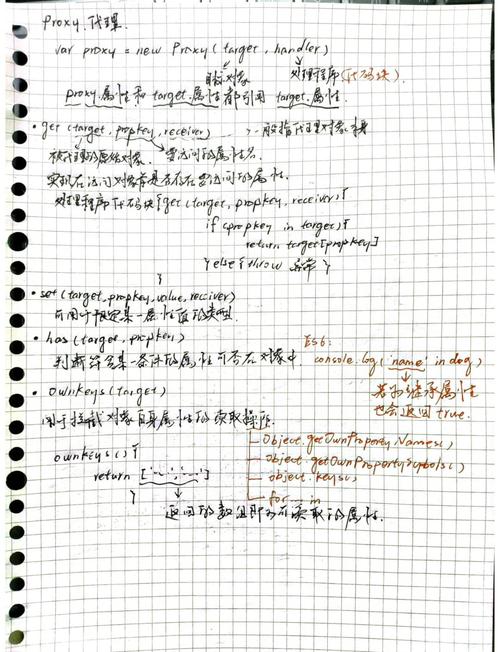 Proxy 代理.
var proxy = new Proxy (target, handler)
目标对象 处理程序 (代码块).
proxy.属性 和 target.属性 都引用 target.属性.
• get (target, propkey, receiver) → 一般指代理对象本身
被代理的原始对象. 要访问的属性名.
实现在访问对象前是否存在要访问的属性.
处理程序代码块 { get (target, propkey, receiver) {
if (propkey in target) {
return target[propkey]
} else { throw 异常 }
}
• set (target, propkey, value, receiver)
可用于预定某一属性值的类型.
• has (target, propkey)
判断符合某一条件的属性可否在对象中.
ES6:
console.log ('name' in dog)
若为继承属性
也会返回 true.
• ownkeys (target)
用于拦截对象自身属性的读取操作.
Object.getOwnPropertyNames()
Object.getOwnPropertySymbols()
object.keys()
for...in
ownkeys () {
return ['—', '—', '—']
}
返回的数组即为可读取的属性.